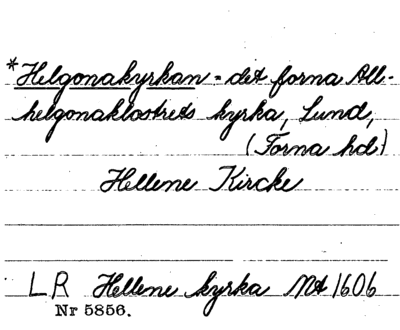 *Helgonakyrkan = det forna All-
helgonaklostrets kyrka, Lund,
(Torna hd.)
Hellene Kircke
LR Hellene kyrka Mt 1606
Nr 5856.